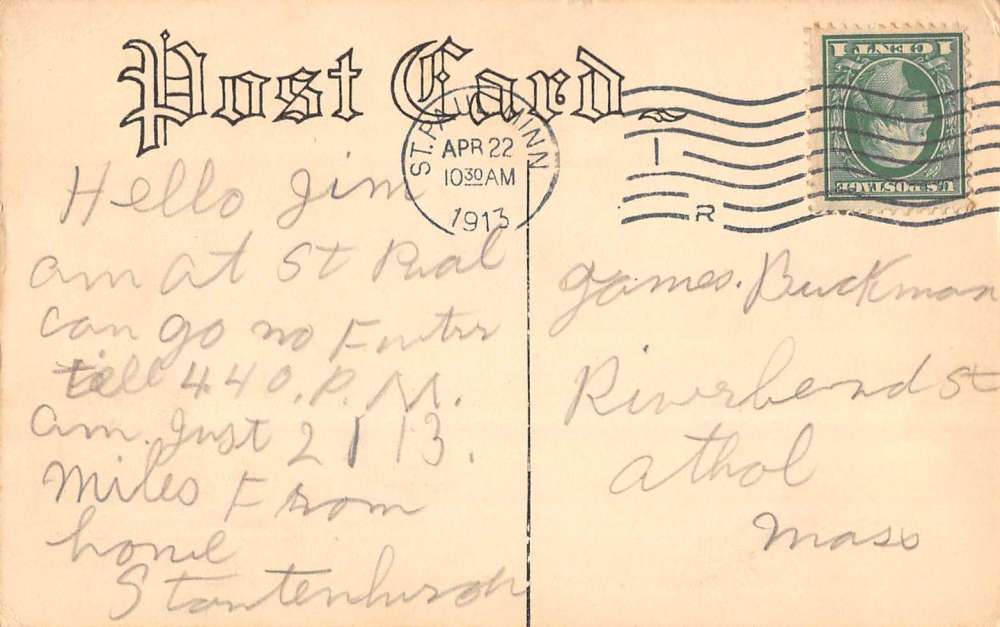 Post Card
ST. PAUL MINN
APR 22
10 30 AM
1913
I
R
1 CENT 1
U.S. POSTAGE
Hello Jim
am at St Paal
can go no Furter
till 440. P. M.
am. Just 2113.
miles From
home
James. Buckman
Riverbend St
athol
Mass